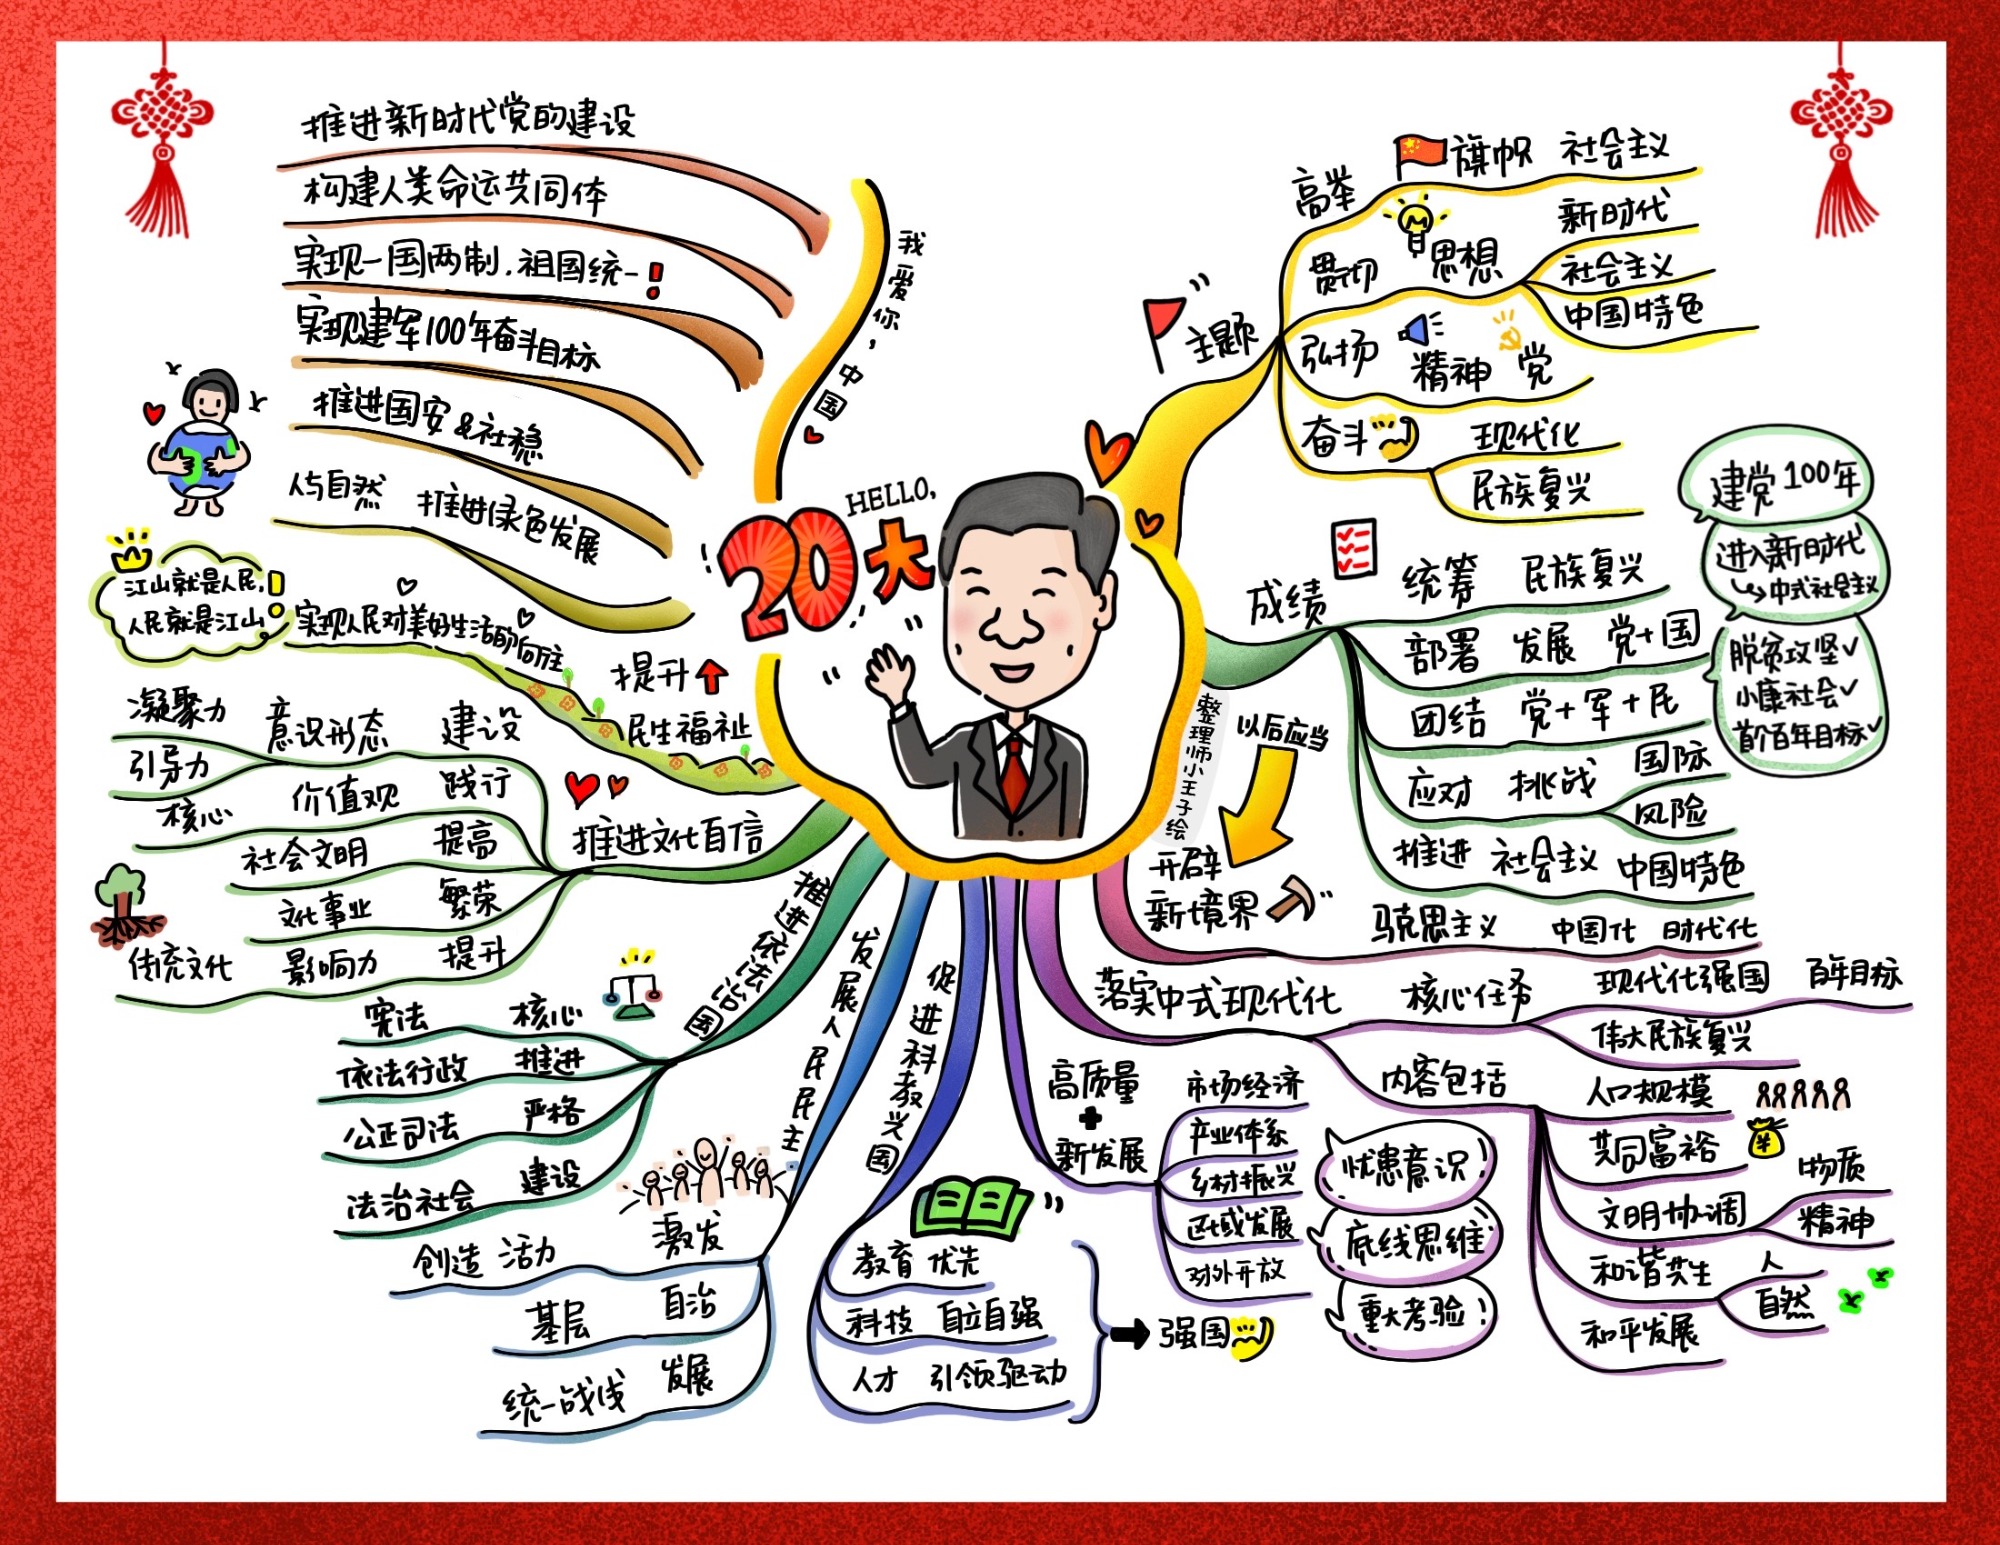 HELLO,
20大
我爱你,中国
整理师小王子绘
主题
高举 旗帜 社会主义
贯切 思想
新时代
社会主义
中国特色
弘扬 精神 党
奋斗
现代化
民族复兴
成绩
统筹 民族复兴
部署 发展 党+国
团结 党+军+民
应对 挑战
国际
风险
推进 社会主义 中国特色
建党100年
进入新时代
中式社会主义
脱贫攻坚✓
小康社会✓
首个百年目标✓
以后应当
开辟
新境界
马克思主义 中国化 时代化
落实中式现代化
核心任务
现代化强国 百年目标
伟大民族复兴
内容包括
人口规模
共同富裕
¥
文明协调
物质
精神
和谐共生
人
自然
和平发展
高质量
+
新发展
市场经济
产业体系
乡村振兴
区域发展
对外开放
忧患意识!
底线思维
重大考验!
促进科教兴国
教育 优先
科技 自立自强
人才 引领驱动
强国
发展人民民主
激发
创造 活力
基层 自治
统一战线 发展
推进依法治国
宪法 核心
依法行政 推进
公正司法 严格
法治社会 建设
推进文化自信
凝聚力
引导力
意识形态 建设
核心 价值观 践行
社会文明 提高
文化事业 繁荣
传统文化 影响力 提升
提升
民生福祉
实现人民对美好生活的向往
江山就是人民,
人民就是江山!
人与自然 推进绿色发展
推进国安&社稳
实现建军100年奋斗目标
实现一国两制.祖国统一!
构建人类命运共同体
推进新时代党的建设